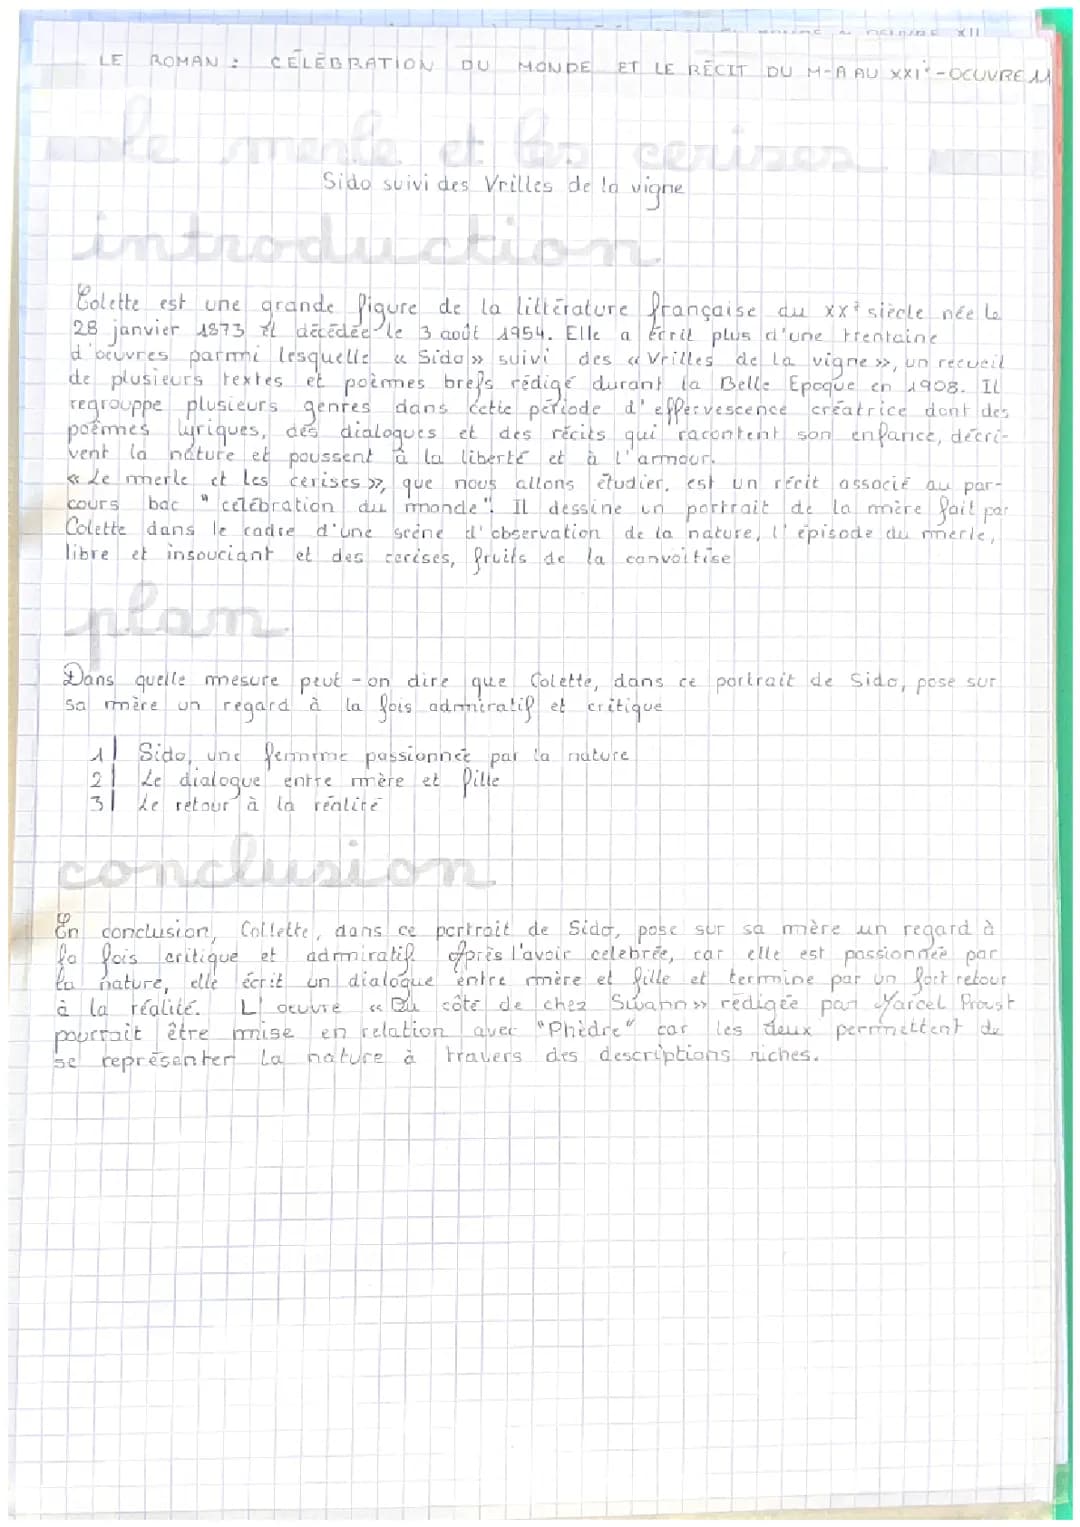 LE ROMAN : CÉLÉBRATION DU MONDE ET LE RÉCIT DU M-A AU XXI° - OEUVRE 11
le merle et les cerises
Sido suivi des Vrilles de la vigne
introduction
Colette est une grande figure de la littérature française du XX° siècle née le
28 janvier 1873 et décédée le 3 août 1954. Elle a écrit plus d'une trentaine
d'oeuvres parmi lesquelle « Sido » suivi des « Vrilles de la vigne », un recueil
de plusieurs textes et poèmes brefs rédigé durant la Belle Epoque en 1908. Il
regrouppe plusieurs genres dans cette période d'effervescence créatrice dont des
poèmes lyriques, des dialogues et des récits qui racontent son enfance, décri-
vent la nature et poussent à la liberté et à l'amour.
« Le merle et les cerises », que nous allons étudier, est un récit associé au par-
cours bac "célébration du monde". Il dessine un portrait de la mère fait par
Colette dans le cadre d'une scène d'observation de la nature, l'épisode du merle,
libre et insouciant et des cerises, fruits de la convoitise
plan
Dans quelle mesure peut-on dire que Colette, dans ce portrait de Sido, pose sur
sa mère un regard à la fois admiratif et critique
1| Sido, une femme passionnée par la nature
2| Le dialogue entre mère et fille
3| Le retour à la réalité
conclusion
En conclusion, Collette, dans ce portrait de Sido, pose sur sa mère un regard à
la fois critique et admiratif Après l'avoir celebrée, car elle est passionnée par
la nature, elle écrit un dialogue entre mère et fille et termine par un fort retour
à la réalité. L'oeuvre « Du côté de chez Swann » redigée par Marcel Proust
pourrait être mise en relation avec "Phèdre" car les deux permettent de
se représenter la nature à travers des descriptions riches.